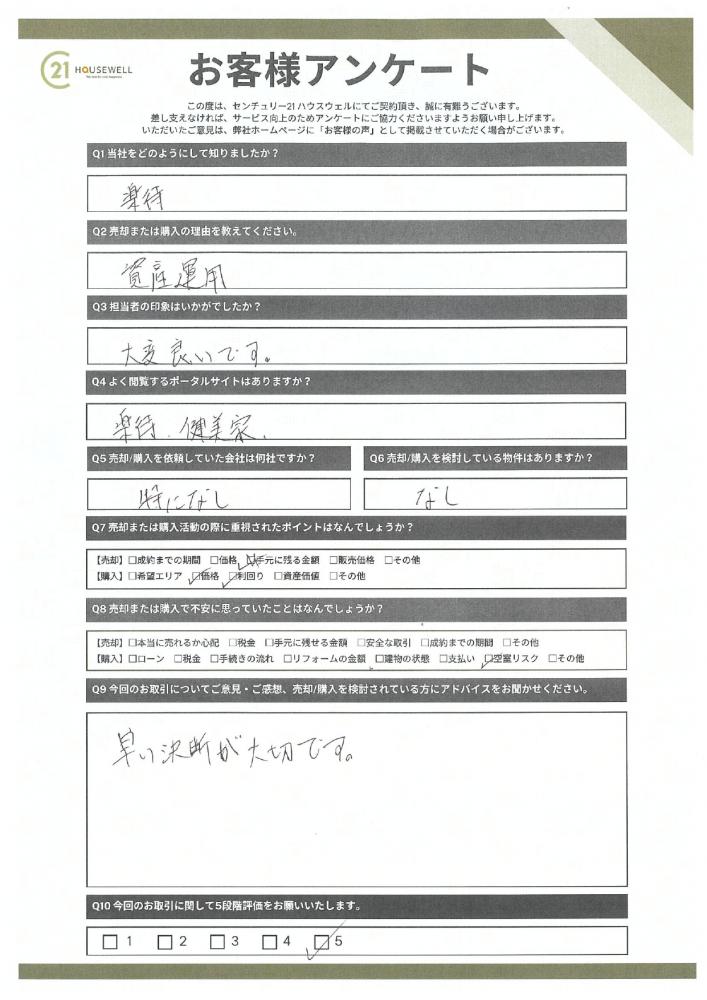 21 HOUSEWELL
お客様アンケート
この度は、センチュリー21 ハウスウェルにてご契約頂き、誠に有難うございます。
差し支えなければ、サービス向上のためアンケートにご協力くださいますようお願い申し上げます。
いただいたご意見は、弊社ホームページに「お客様の声」として掲載させていただく場合がございます。
Q1 当社をどのようにして知りましたか?
楽待
Q2 売却または購入の理由を教えてください。
資産運用
Q3 担当者の印象はいかがでしたか?
大変良いです。
Q4 よく閲覧するポータルサイトはありますか?
楽待、健美家、
Q5 売却/購入を依頼していた会社は何社ですか? Q6 売却/購入を検討している物件はありますか?
特になし なし
Q7 売却または購入活動の際に重視されたポイントはなんでしょうか?
【売却】□成約までの期間 □価格 ☑手元に残る金額 □販売価格 □その他
【購入】□希望エリア ☑価格 ☑利回り □資産価値 □その他
Q8 売却または購入で不安に思っていたことはなんでしょうか?
【売却】□本当に売れるか心配 □税金 □手元に残せる金額 □安全な取引 □成約までの期間 □その他
【購入】□ローン □税金 □手続きの流れ □リフォームの金額 □建物の状態 □支払い ☑空室リスク □その他
Q9 今回のお取引についてご意見・ご感想、売却/購入を検討されている方にアドバイスをお聞かせください。
早い決断が大切です。
Q10 今回のお取引に関して5段階評価をお願いいたします。
□ 1 □ 2 □ 3 □ 4 ☑ 5